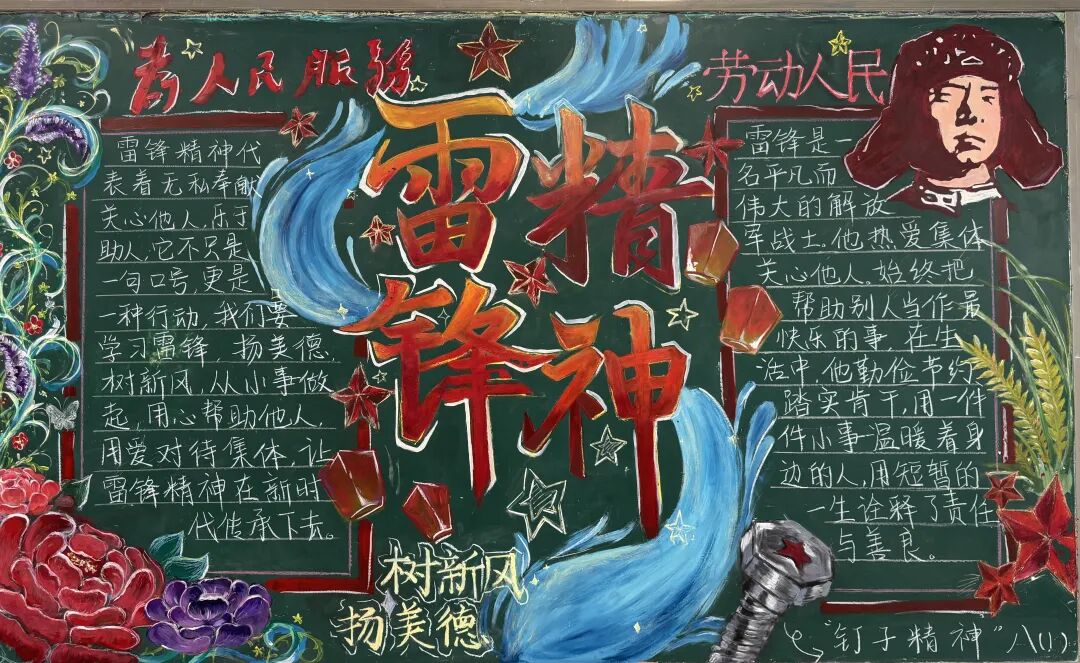 为人民服务
雷锋精神代
表着无私奉献
关心他人,乐于
助人,它不只是
一句口号,更是
一种行动,我们要
学习雷锋,扬美德,
树新风,从小事做
起,用心帮助他人,
用爱对待集体,让
雷锋精神在新时
代传承下去。
雷锋
精神
树新风
扬美德
劳动人民
雷锋是一
名平凡而
伟大的解放
军战士。他热爱集体
关心他人。始终把
帮助别人当作最
快乐的事,在生
活中,他勤俭节约
踏实肯干,用一件
件小事温暖着身
边的人,用短暂的
一生诠释了责任
与善良。
"钉子精神"八(1)